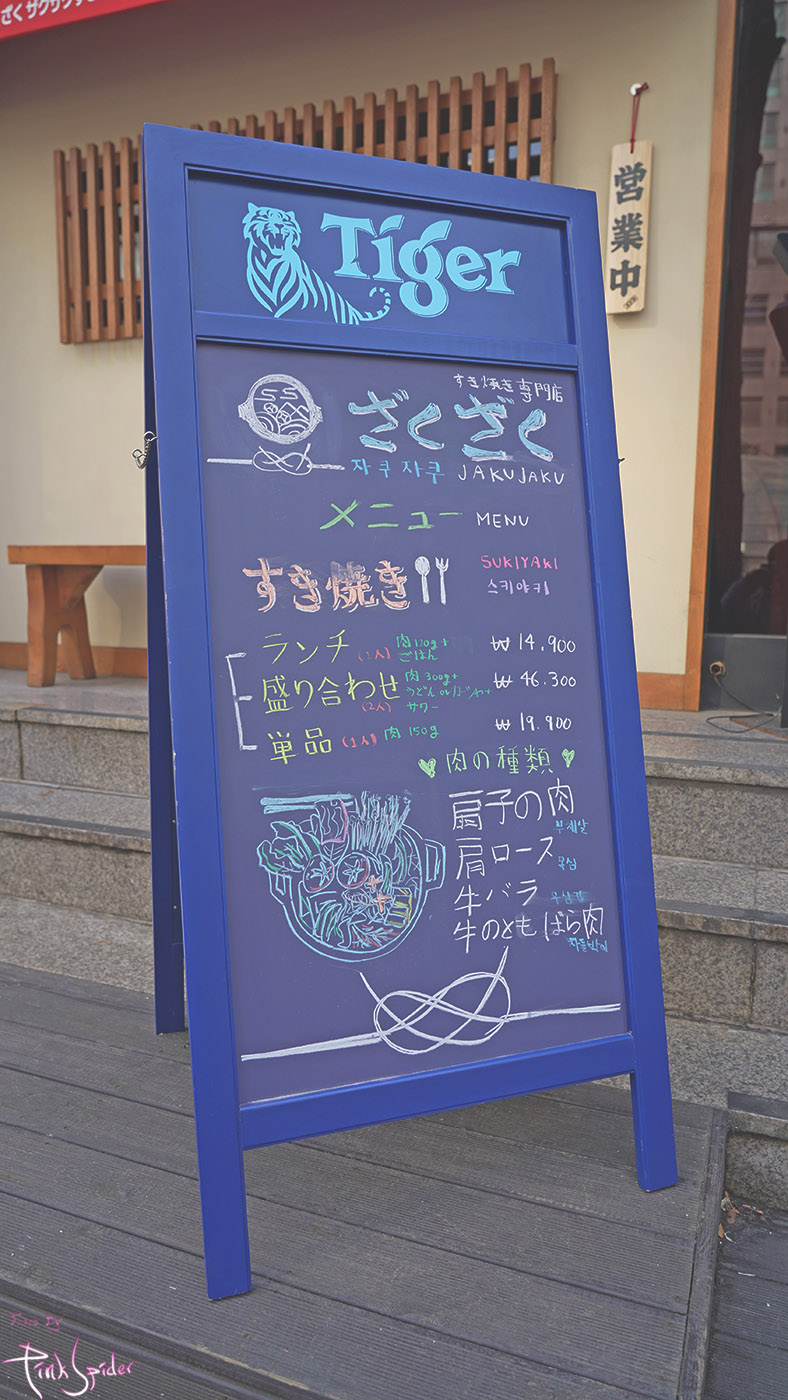 ざくザクザク
営業中
Tiger
すき焼き専門店
ざくざく
자쿠자쿠 JAKUJAKU
メニュー MENU
すき焼き SUKIYAKI
스키야키
ランチ (1人) 肉120g+ ごはん ₩ 14.900
盛り合わせ (2人) 肉300g+ うどん or ₩ 46.300
サワー
単品 (1人) 肉150g ₩ 19.900
肉の種類
扇子の肉 부채살
肩ロース 목심
牛バラ 우삼겹
牛のともばら肉
차돌박이
Pink Spider